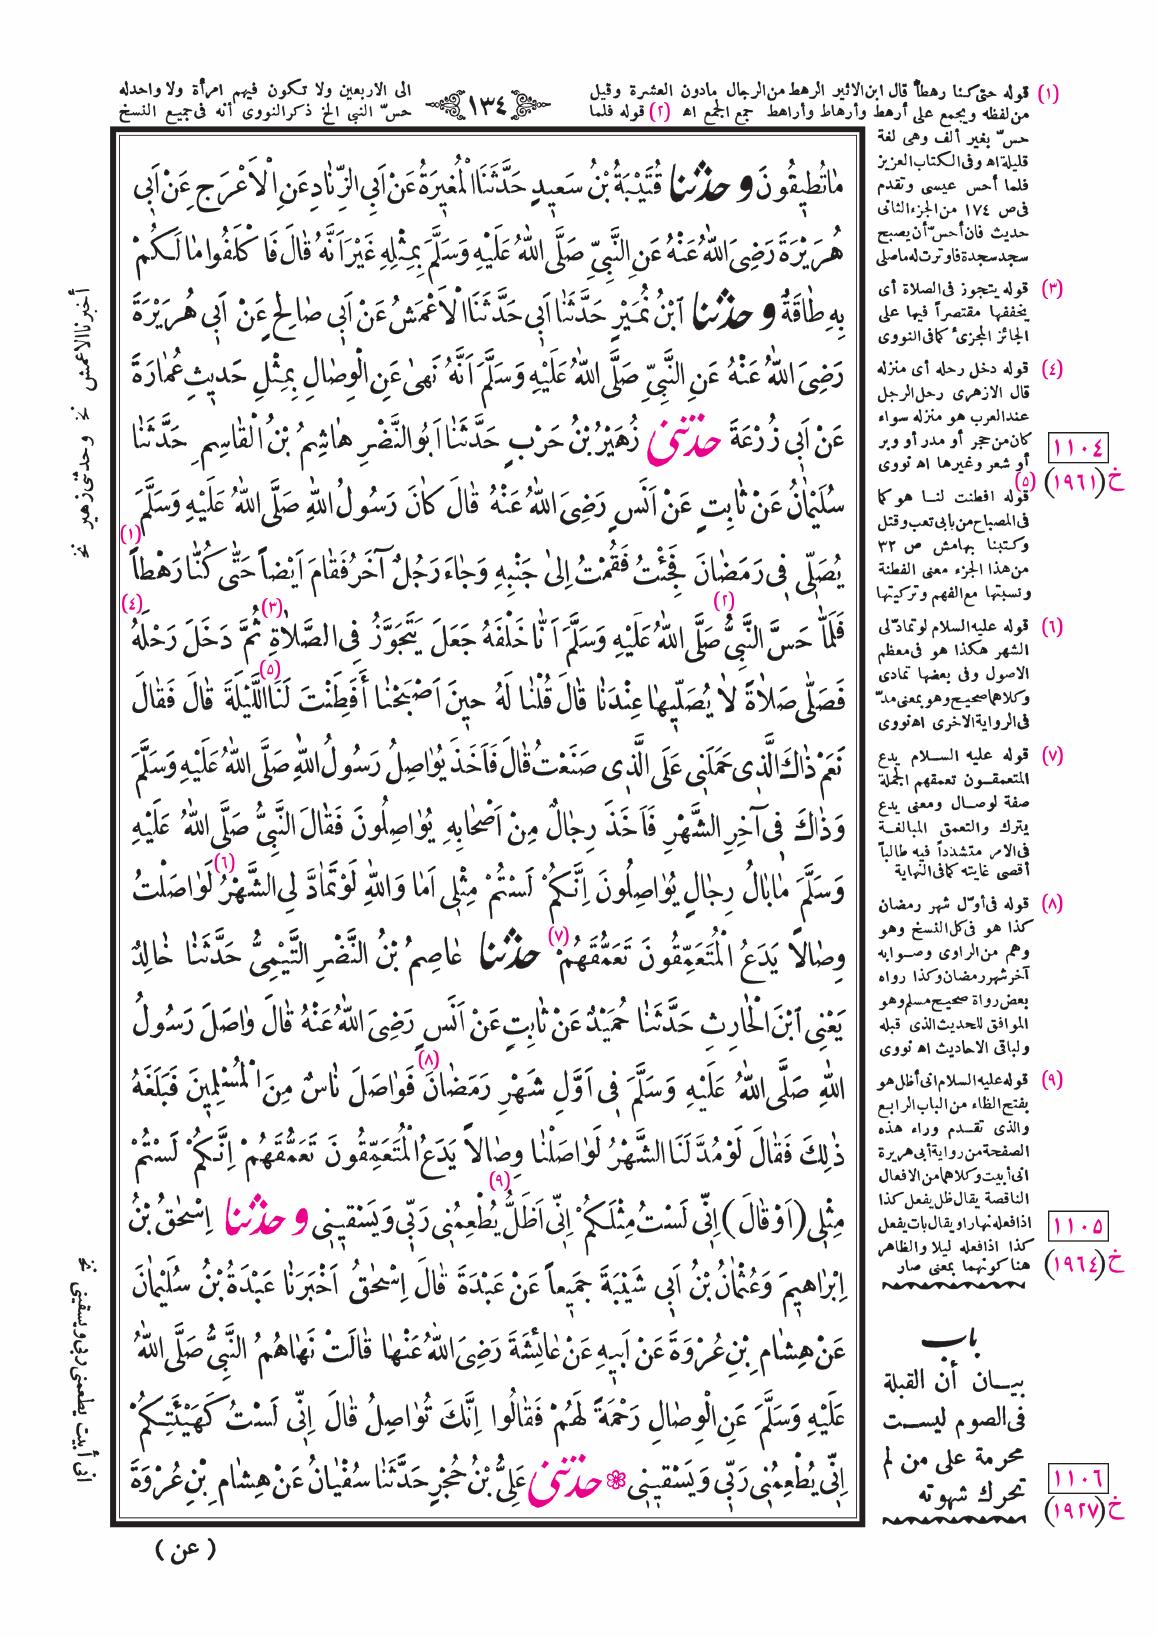 (١) قوله حتى كنا رهطاً قال ابن الاثير الرهط من الرجال مادون العشرة وقيل
من لفظه ويجمع على أرهط وأرهاط وأراهط جمع الجمع اه (٢) قوله فلما
١٣٤
الى الاربعين ولا تكون فيهم امرأة ولا واحدله
حسّ النبى الخ ذكر النووى أنه فى جميع النسخ
حسّ بغير ألف وهى لغة
قليلة اه وفى الكتاب العزيز
فلما أحس عيسى وتقدم
فى ص ١٧٤ من الجزء الثانى
حديث فان أحسّ أن يصبح
سجد سجدة فاوترت له ماصلى
(٣) قوله يتجوز فى الصلاة أى
يخففها مقتصراً فيها على
الجائز المجزئ كما فى النووى
(٤) قوله دخل رحله أى منزله
قال الازهرى رحل الرجل
عند العرب هو منزله سواء
كان من حجر أو مدر أو وبر
أو شعر وغيرها اه نووى
(٥) قوله افطنت لنا هو كما
فى المصباح من بابى تعب وقتل
وكتبنا بهامش ص ٣٢
من هذا الجزء معنى الفطنة
ونسبتها مع الفهم وتركيتها
(٦) قوله عليه السلام لو تمادّ لى
الشهر هكذا هو فى معظم
الاصول وفى بعضها تمادى
وكلاهما صحيح وهو بمعنى مدّ
فى الرواية الاخرى اه نووى
(٧) قوله عليه السلام يدع
المتعمقون تعمقهم الجملة
صفة لوصال ومعنى يدع
يترك والتعمق المبالغة
فى الامر متشدداً فيه طالباً
أقصى غايته كما فى النهاية
(٨) قوله فى أوّل شهر رمضان
كذا هو فى كل النسخ وهو
وهم من الراوى وصوابه
آخر شهر رمضان وكذا رواه
بعض رواة صحيح مسلم وهو
الموافق للحديث الذى قبله
ولباقى الاحاديث اه نووى
(٩) قوله عليه السلام انى أظل هو
بفتح الظاء من الباب الرابع
والذى تقدم وراء هذه
الصفحة من رواية أبى هريرة
انى أبيت وكلاهما من الافعال
الناقصة يقال ظل يفعل كذا
اذا فعله نهارا ويقال بات يفعل
كذا اذا فعله ليلا والظاهر
هنا كونهما بمعنى صار
باب
بيان أن القبلة
فى الصوم ليست
محرمة على من لم
تحرك شهوته
١١٠٤
خ (١٩٦١)
١١٠٥
خ (١٩٦٤)
١١٠٦
خ (١٩٢٧)
مَا تُطِيقُونَ وحَدَّثَنَا قُتَيْبَةُ بْنُ سَعِيدٍ حَدَّثَنَا الْمُغِيرَةُ عَنْ أَبِي الزِّنَادِ عَنِ الْأَعْرَجِ عَنْ أَبِي
هُرَيْرَةَ رَضِيَ اللهُ عَنْهُ عَنِ النَّبِيِّ صَلَّى اللهُ عَلَيْهِ وَسَلَّمَ بِمِثْلِهِ غَيْرَ أَنَّهُ قَالَ فَاكْلَفُوا مَا لَكُمْ
بِهِ طَاقَةٌ وحَدَّثَنَا ابْنُ نُمَيْرٍ حَدَّثَنَا أَبِي حَدَّثَنَا الْأَعْمَشُ عَنْ أَبِي صَالِحٍ عَنْ أَبِي هُرَيْرَةَ
رَضِيَ اللهُ عَنْهُ عَنِ النَّبِيِّ صَلَّى اللهُ عَلَيْهِ وَسَلَّمَ أَنَّهُ نَهَى عَنِ الْوِصَالِ بِمِثْلِ حَدِيثِ عُمَارَةَ
عَنْ أَبِي زُرْعَةَ حَدَّثَنِي زُهَيْرُ بْنُ حَرْبٍ حَدَّثَنَا أَبُو النَّضْرِ هَاشِمُ بْنُ الْقَاسِمِ حَدَّثَنَا
سُلَيْمَانُ عَنْ ثَابِتٍ عَنْ أَنَسٍ رَضِيَ اللهُ عَنْهُ قَالَ كَانَ رَسُولُ اللهِ صَلَّى اللهُ عَلَيْهِ وَسَلَّمَ
يُصَلِّي فِي رَمَضَانَ فَجِئْتُ فَقُمْتُ إِلَى جَنْبِهِ وَجَاءَ رَجُلٌ آخَرُ فَقَامَ أَيْضاً حَتَّى كُنَّا رَهْطاً (١)
فَلَمَّا حَسَّ (٢) النَّبِيُّ صَلَّى اللهُ عَلَيْهِ وَسَلَّمَ أَنَّا خَلْفَهُ جَعَلَ يَتَجَوَّزُ (٣) فِي الصَّلَاةِ ثُمَّ دَخَلَ رَحْلَهُ (٤)
فَصَلَّى صَلَاةً لَا يُصَلِّيهَا عِنْدَنَا قَالَ قُلْنَا لَهُ حِينَ أَصْبَحْنَا أَفَطِنْتَ (٥) لَنَا اللَّيْلَةَ قَالَ فَقَالَ
نَعَمْ ذَاكَ الَّذِي حَمَلَنِي عَلَى الَّذِي صَنَعْتُ قَالَ فَأَخَذَ يُوَاصِلُ رَسُولُ اللهِ صَلَّى اللهُ عَلَيْهِ وَسَلَّمَ
وَذَاكَ فِي آخِرِ الشَّهْرِ فَأَخَذَ رِجَالٌ مِنْ أَصْحَابِهِ يُوَاصِلُونَ فَقَالَ النَّبِيُّ صَلَّى اللهُ عَلَيْهِ
وَسَلَّمَ مَا بَالُ رِجَالٍ يُوَاصِلُونَ إِنَّكُمْ لَسْتُمْ مِثْلِي أَمَا وَاللهِ لَوْ تَمَادَّ لِيَ الشَّهْرُ (٦) لَوَاصَلْتُ
وِصَالاً يَدَعُ الْمُتَعَمِّقُونَ تَعَمُّقَهُمْ (٧) حَدَّثَنَا عَاصِمُ بْنُ النَّضْرِ التَّيْمِيُّ حَدَّثَنَا خَالِدٌ
يَعْنِي ابْنَ الْحَارِثِ حَدَّثَنَا حُمَيْدٌ عَنْ ثَابِتٍ عَنْ أَنَسٍ رَضِيَ اللهُ عَنْهُ قَالَ وَاصَلَ رَسُولُ
اللهِ صَلَّى اللهُ عَلَيْهِ وَسَلَّمَ فِي أَوَّلِ شَهْرِ رَمَضَانَ (٨) فَوَاصَلَ نَاسٌ مِنَ الْمُسْلِمِينَ فَبَلَغَهُ
ذَلِكَ فَقَالَ لَوْ مُدَّ لَنَا الشَّهْرُ لَوَاصَلْنَا وِصَالاً يَدَعُ الْمُتَعَمِّقُونَ تَعَمُّقَهُمْ إِنَّكُمْ لَسْتُمْ
مِثْلِي (أَوْ قَالَ) إِنِّي لَسْتُ مِثْلَكُمْ إِنِّي أَظَلُّ (٩) يُطْعِمُنِي رَبِّي وَيَسْقِينِي وحَدَّثَنَا إِسْحَقُ بْنُ
إِبْرَاهِيمَ وَعُثْمَانُ بْنُ أَبِي شَيْبَةَ جَمِيعاً عَنْ عَبْدَةَ قَالَ إِسْحَقُ أَخْبَرَنَا عَبْدَةُ بْنُ سُلَيْمَانَ
عَنْ هِشَامِ بْنِ عُرْوَةَ عَنْ أَبِيهِ عَنْ عَائِشَةَ رَضِيَ اللهُ عَنْهَا قَالَتْ نَهَاهُمُ النَّبِيُّ صَلَّى اللهُ
عَلَيْهِ وَسَلَّمَ عَنِ الْوِصَالِ رَحْمَةً لَهُمْ فَقَالُوا إِنَّكَ تُوَاصِلُ قَالَ إِنِّي لَسْتُ كَهَيْئَتِكُمْ
إِنِّي يُطْعِمُنِي رَبِّي وَيَسْقِينِي حَدَّثَنِي عَلِيُّ بْنُ حُجْرٍ حَدَّثَنَا سُفْيَانُ عَنْ هِشَامِ بْنِ عُرْوَةَ
أخبرنا الاعمش نخ وحدثنى زهير نخ
انى أبيت يطعمنى ربى ويسقينى نخ
( عن )